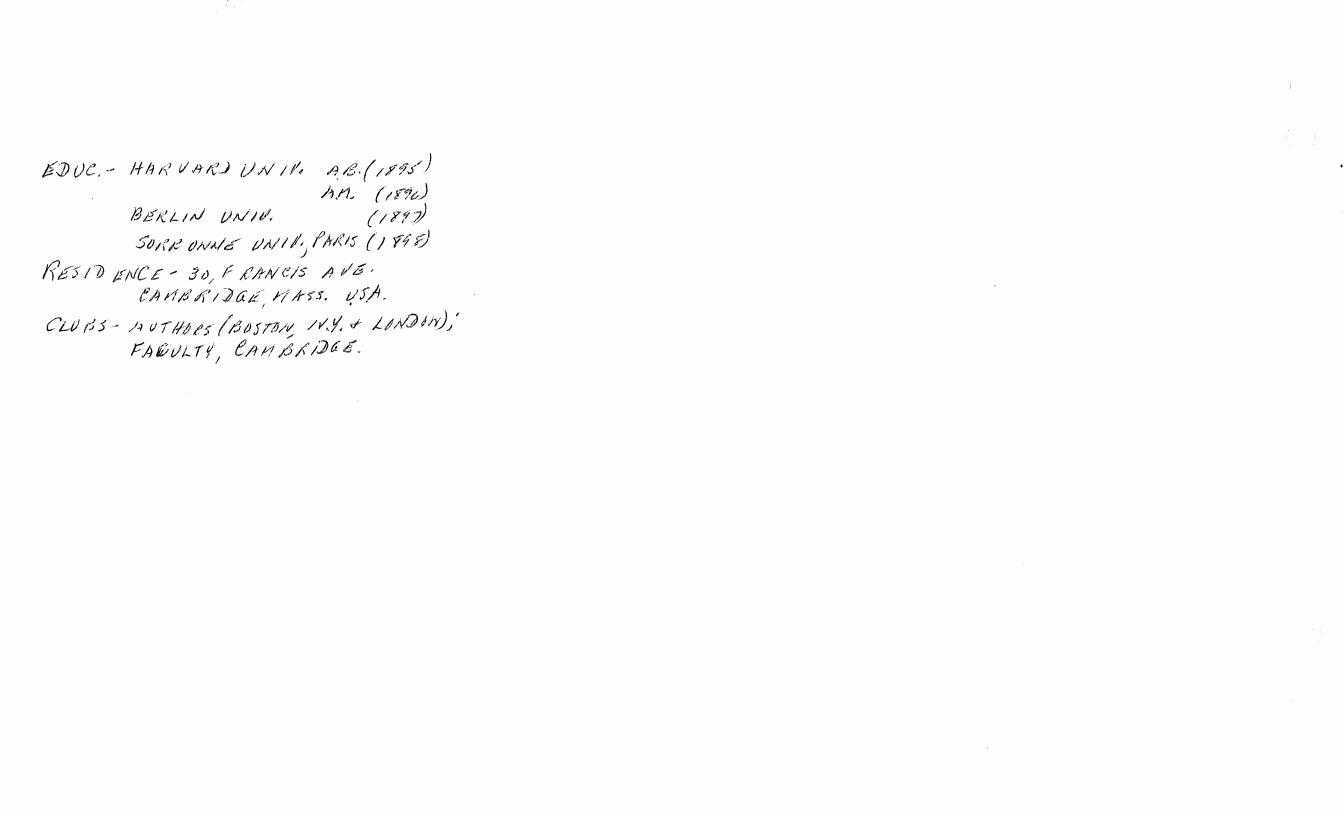 EDUC.- HARVARD UNIV. A.B. (1895)
A.M. (1896)
BERLIN UNIV. (1897)
SORBONNE UNIV., PARIS (1898)
RESIDENCE - 30, FRANCIS AVE.
CAMBRIDGE, MASS. USA.
CLUBS - AUTHORS (BOSTON, N.Y. & LONDON);
FACULTY, CAMBRIDGE.